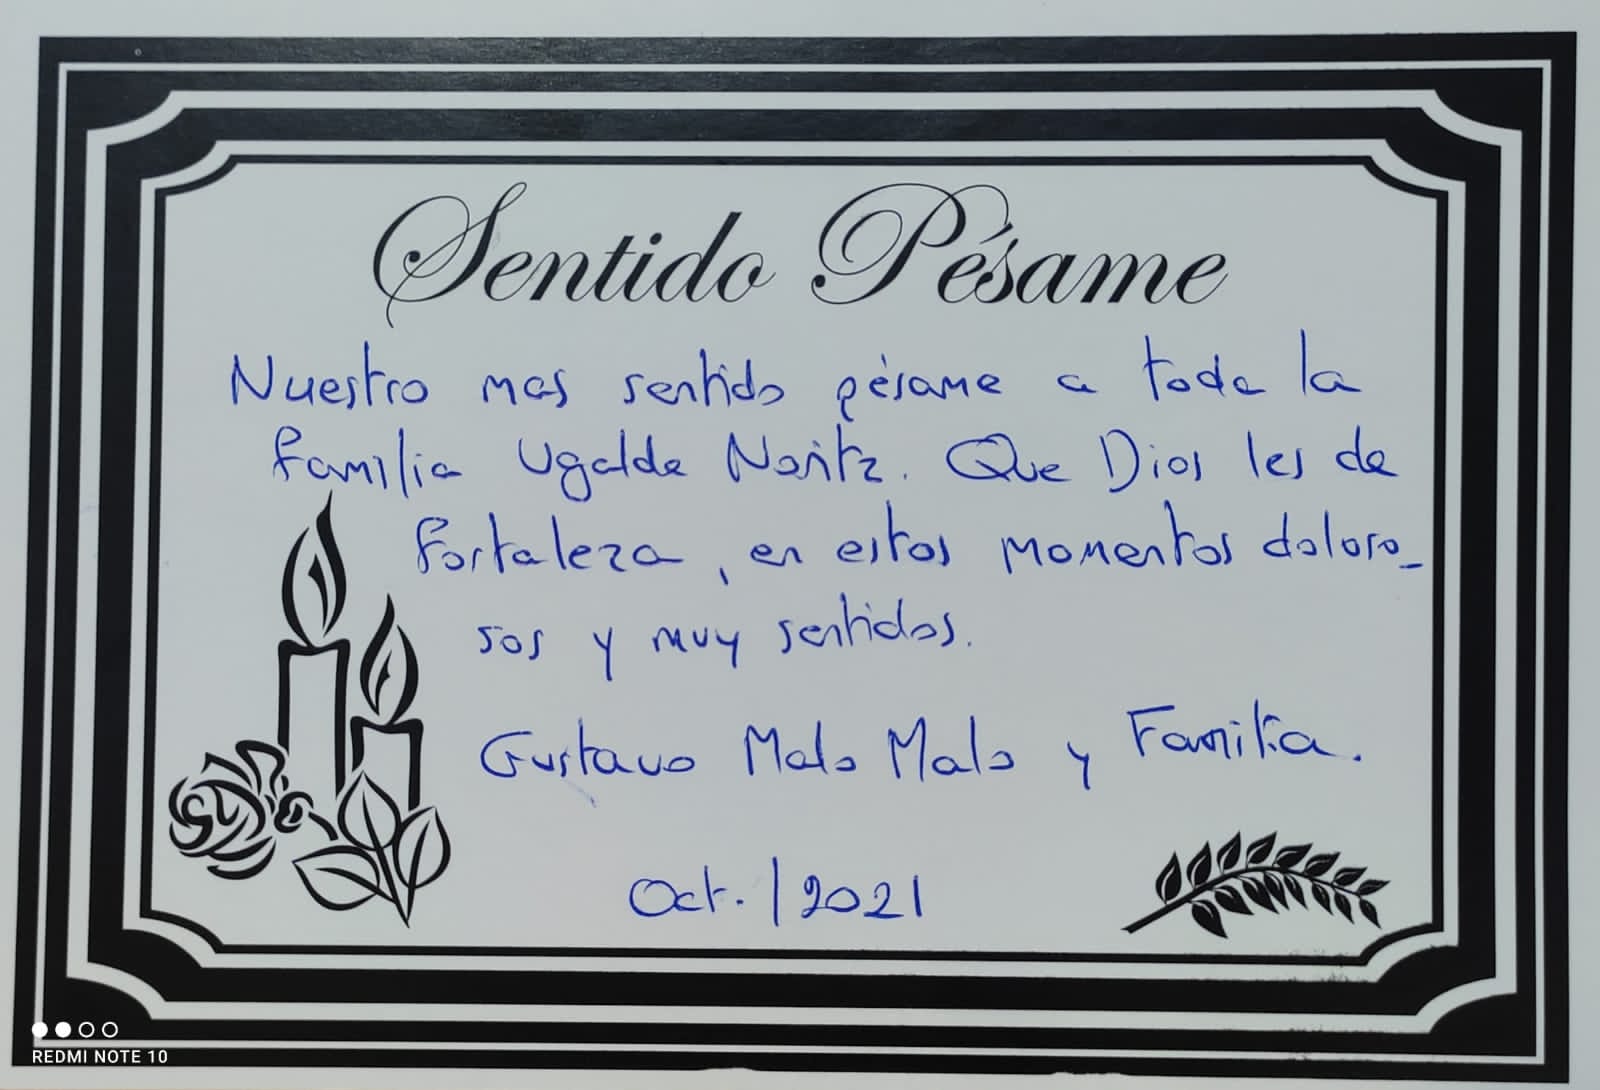 Sentido Pésame
Nuestro mas sentido pésame a toda la
familia Ugalde Noritz. Que Dios les de
fortaleza, en estos momentos doloro_
sos y muy sentidos.
Gustavo Malo Malo y Familia.
Oct. / 2021
REDMI NOTE 10